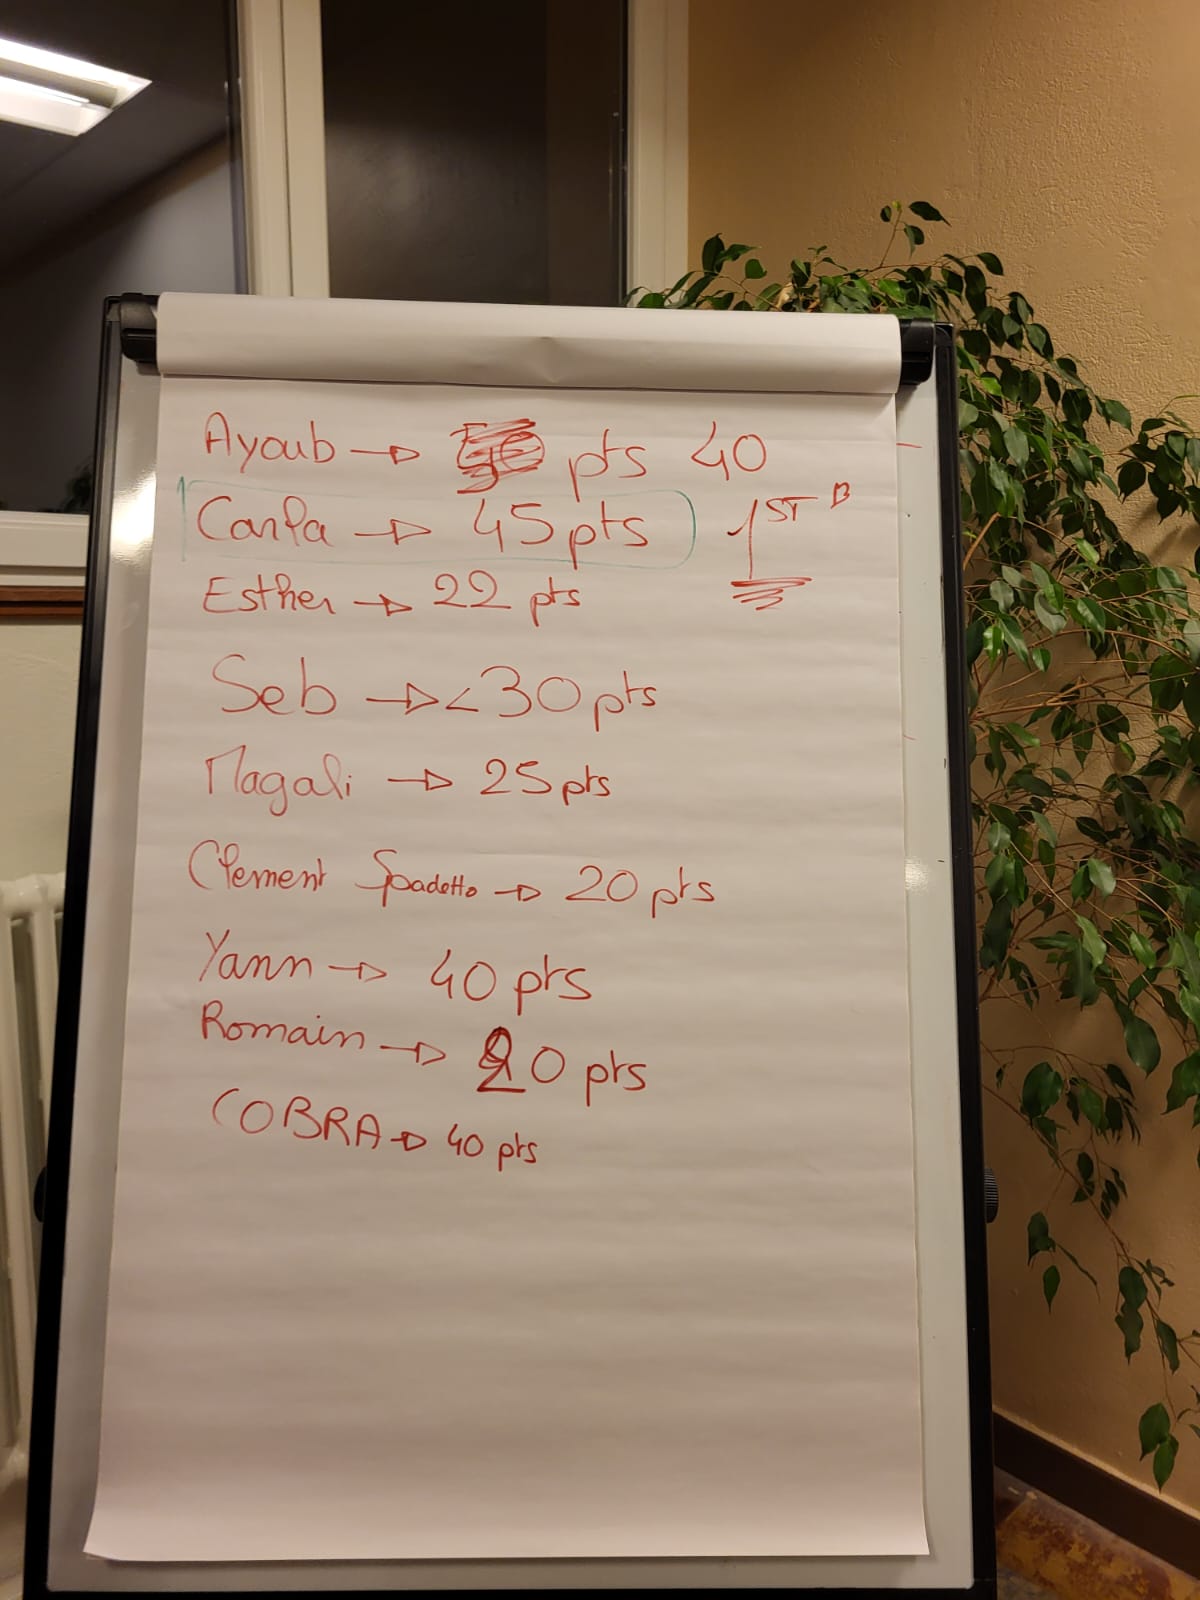 Ayoub → pts 40
Carla → 45 pts
1ST
Esther → 22 pts
Seb → <30 pts
Magali → 25 pts
Clement Spadetto → 20 pts
Yann → 40 pts
Romain → 20 pts
COBRA → 40 pts